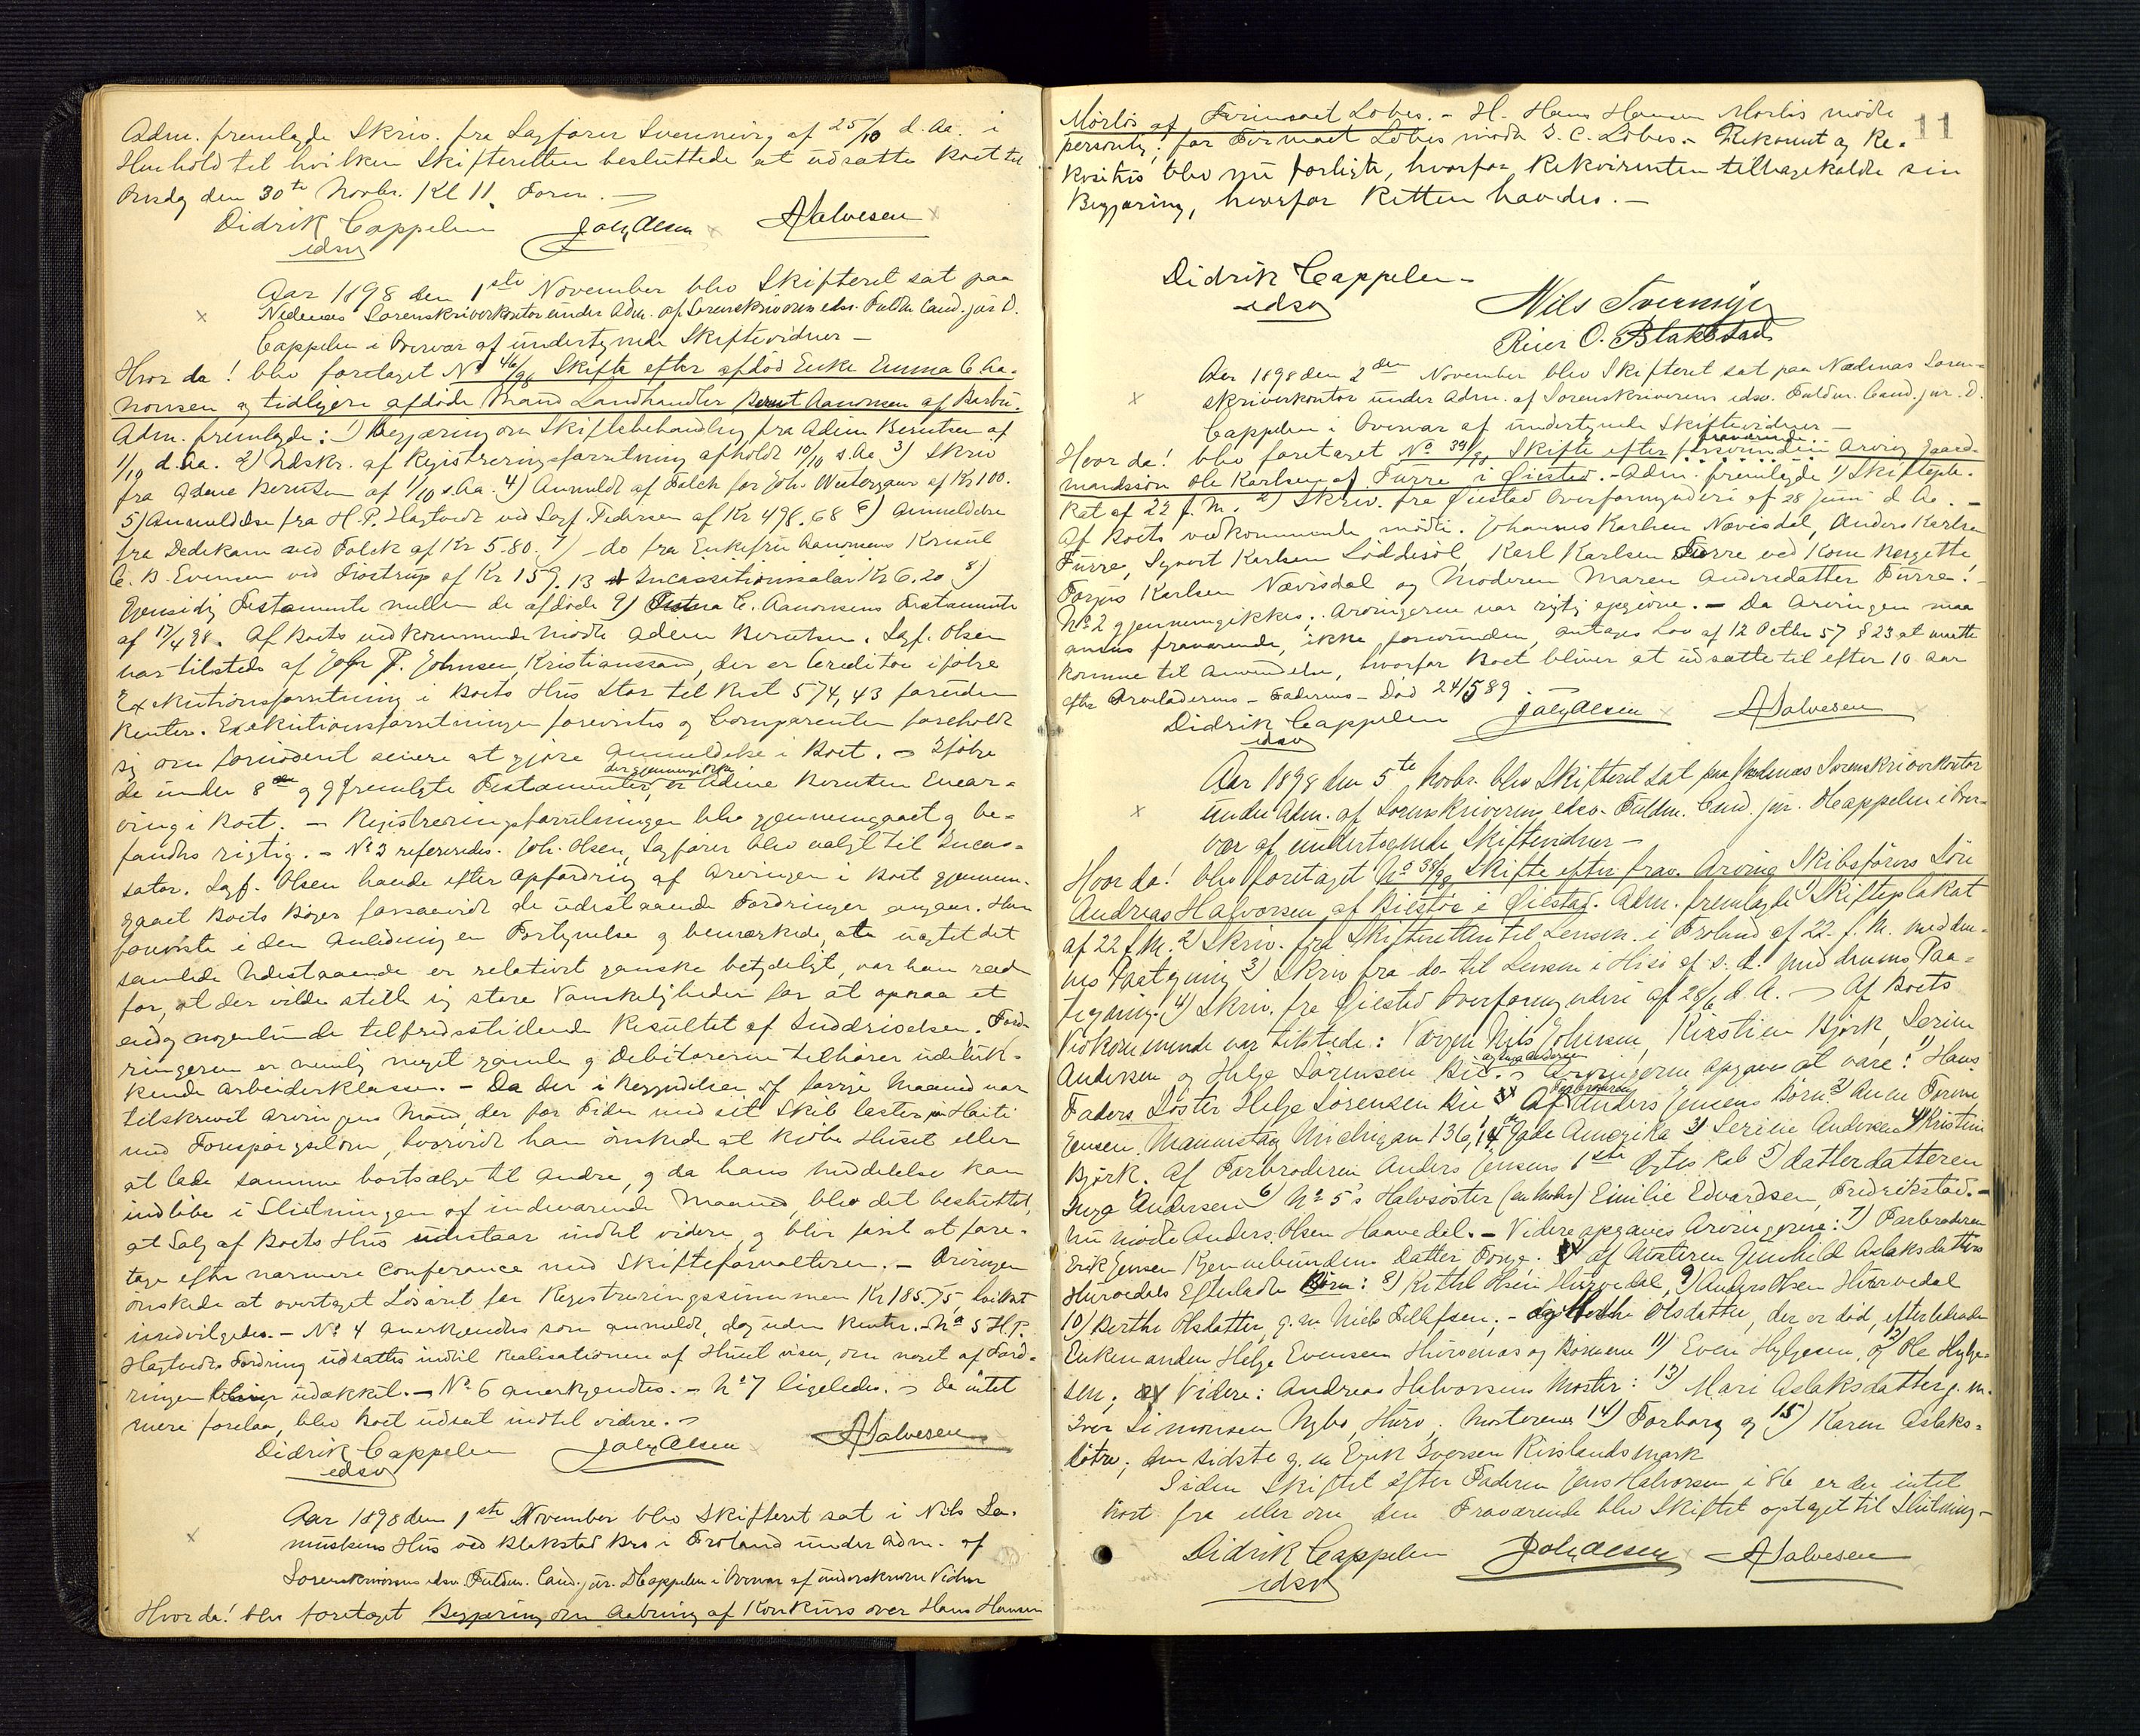 Adm. fremlagde Skriv. fra Sagfører Svenning af 25/10 d. Aa. i
Henhold til hvilken Skifteretten besluttede at udsætte Boet til
Onsdag den 30te Novbr. Kl 11. Form. —
Didrik Cappelen Joh. Olsen A Halvesen
edsv
Aar 1898 den 1ste November blev Skifteret sat paa
Nedenæs Sorenskriverkontor under Adm. af Sorenskriverens edsv. Fuldm. Cand. jur D.
Cappelen i Overvær af undertegnede Skiftevidner —
Hvor da! blev foretaget No 46/98 Skifte efter afdød Enke Emma C Aa-
nonsen og tidligere afdøde Mand Landhandler Bernt Aanonsen af Barbu.
Adm. fremlagde: 1) Begjæring om Skiftebehandling fra Adine Berntsen af
1/10 d. Aa. 2) Udskr. af Registreringsforretning afholdt 10/10 s. Aa 3) Skriv
fra Adine Berntsen af 1/10 s. Aa. 4) Anmeldt af Falck for Joh. Wintergaar af Kr 100.
5) Anmeldelse fra H. P. Hagtvedt ved Sagf. Pedersen af Kr 498.68 6) Anmeldelse
fra Dedekam ved Falck af Kr 5.80. 7) — do fra Enkefru Aanonsens
C. B. Evensen ved Fiostrup af Kr 159.13 Incassationssalær Kr 6.20 8)
Gjensidig Testamente mellem de afdøde 9) C. Aanonsens Testamente
af 17/4 98. Af Boets vedkommende mødte Adine Berntsen. Sagf. Olsen
var tilstede af Johr P. Johnsen, Kristianssand, der er Creditor ifølge
Exekutionsforretning i Boets Hus stor til Rest 574,43 foruden
Renter. Exekutionsforretningen forevistes og Comparenten foreholdt
sig om fornødent senere at gjøre Anmeldelse i Boet. — Ifølge
der gjennemgikkes
de under 8 og 9 fremlagte Testamenter, er Adine Berntsen Enear-
ving i Boet. — Registreringsforretningen blev gjennemgaaet og be-
fandtes rigtig. — No 3 refereredes. Joh. Olsen, Sagfører blev valgt til Incas-
sator. Sagf. Olsen havde efter Opfordring af Arvingen i Boet gjennem-
gaaet Boets Bøger forsaavidt de udestaaende Fordringer angaar. Han
foreviste i den Anledning en Fortegnelse og bemærkede, at uagtet det
samlede Udestaaende er relativt ganske betydeligt, var han ræd
for, at der vilde stille sig store Vanskeligheder for at opnaa et
endog nogenlunde tilfredsstillende Resultat af Inddrivelsen. Ford-
ringerne er nemlig meget gamle og Debitorerne tilhører udeluk-
kende Arbeiderklassen. — Da der i Begyndelsen af forrige Maaned var
tilskrevet Arvingens Mand, der for Tiden med sit Skib laster paa Haiti
med Forespørgsel om, hvorvidt han ønskede at kjøbe Huset eller
at lade samme bortsælge til Andre, og da hans Meddelelse kan
indløbe i Slutningen af indeværende Maaned, blev det besluttet,
at Salg af Boets Hus udestaar indtil videre, og bliver først at fore-
tage efter nærmere Conferance med Skifteforvalteren. — Arvingen
ønskede at overtaget Løsøret for Registreringssummen Kr 185.75, hvilket
indvilgedes. — No 4 anerkjendtes som anmeldt, dog uden Renter. — No 5 H. P.
Hagtvedts Fordring udsattes indtil Realisationen af Huset viser, om noget af Ford-
ringen bliver udækket. — No 6 anerkjendtes. — No 7 ligeledes. — Da intet
mere forelaa, blev Boet udsat indtil videre. —
Didrik Cappelen Joh. Olsen A Halvesen
edsv
Aar 1898 den 1ste November blev Skifteret sat i Nils Ra-
mussens Hus ved Blakstad Bro i Froland under Adm. af
Sorenskriverens edsv. Fuldm. Cand. jur. D Cappelen i Overvær af underskrevne Vidner
Hvor da! blev foretaget Begjæring om Aabning af Konkurs over Hans Hansen
11
Mørlös af Firmaet Løbes. — H. Hans Hansen Mørlös mødte
personlig; for Firmaet Løbes mødte I. C. Løbes. — Rekvirent og Re-
kvisitus blev nu forligte, hvorfor Rekvirenten tilbagekaldte sin
Begjæring, hvorfor Retten hævedes. —
Didrik Cappelen
edsv
Nils Tvermyr
Reier O. Blakstad
Aar 1898 den 2den November blev Skifteret sat paa Nedenæs Soren-
skriverkontor under Adm. af Sorenskriverens edsv. Fuldm. Cand. jur. D.
Cappelen i Overvær af undertegnede Skiftevidner —
fraværende
Hvor da! blev foretaget No 39/98 Skifte efter forsvunden Arving Gaard-
mandssøn Ole Karlsen af Furre i Øiestad. — Adm. fremlagde 1) Skiftepla-
kat af 22 f. M. 2) Skriv. fra Øiestad Overformynderi af 28 Juni d. Aa. —
Af Boets vedkommende mødte. Johannes Karlsen Nævisdal, Anders Karlsen
Furre, Syvert Karlsen Løddesøl, Karl Karlsen Furre ved Kone Bergette,
Torjus Karlsen Nævisdal og Moderen Maren Andersdatter Furre!
No 2 gjennemgikkes; Arvingerne var rigtig opgivne. — Da Arvingen maa
ansees fraværende, ikke forsvunden, antages Lov af 12 Octbr 57 § 23 at maatte
komme til Anvendelse, hvorfor Boet bliver at udsætte til efter 10 Aar
efter Arveladerens — Faderens — Død 24/5 89.
Didrik Cappelen Joh. Olsen A Halvesen
edsv
Aar 1898 den 5te Novbr. blev Skifteret sat paa Nedenæs Sorenskriverkontor
under Adm. af Sorenskriverens edsv. Fuldm. Cand. jur. D Cappelen i Over-
vær af undertegnede Skiftevidner —
Hvor da! blev foretaget No 38/98 Skifte efter frav. Arving Skibsførers Søn
Andreas Halvorsen af Bilstøe i Øiestad. Adm. fremlagde 1) Skifteplakat
af 22 f. M. 2) Skriv. fra Skifteretten til Lensm. i Froland af 22. f. M. med den-
nes Paategning 3) Skriv fra do til Lensm i Hisø af s. d. med dennes Paa-
tegning. 4) Skriv. fra Øiestad Overformynderi af 28/6 d. A. — Af Boets
Vedkommende var tilstede: Værgen Nils Johnsen, Kirstine Bjørk, Serine
og Inga Andersen
Andersen og Helge Sørensen Bie. — Arvingerne opgaves at være: 1) Hans
Farbroderen
Faders Søster Helje Sørensen Bie Af Anders Jensens Børn: 2) Anne Tomine
Jensen Mannistag Michigan 136, 14 Gade Amerika 3) Serine Andersen 4) Kristine
Bjørk. Af Farbroderen Anders Jensens 1ste Ægteskab 5) datterdatteren
Inga Andersen 6) No 5's Halvsøster (en Moder) Emilie Edvardsen, Fredrikstad. —
Nu mødte Anders Olsen Haavedal. — Videre opgaves Arvingerne: 7) Farbroderen
Erik Jensen Kjennebundens Datter Tonje. af Mosteren Gunhild Aslaksdatters
Hurvedals Efterladte Børn: 8) Kittil Olsen Hurvedal, 9) Anders Olsen Hurvedal
10) Berthe Olsdatter, g. m Niels Tellefsen; — Olsdatter, der er død, efterladende
Enkemanden Helge Evensen Hurvenæs og Børnene 11) Even Helgesen, 12) og Ole Helge-
sen; Videre: Andreas Halvorsens Moster: 13) Mari Aslaksdatter g. m.
Iver Simonsen Nybo, Hurv. Mosterene 14) Torborg og 15) Karen Aslaks-
døtre; den sidste g. m Erik Iversen Rislandsmark
Siden Skiftet efter Faderen Jens Halvorsen i 86 er der intet
hørt fra eller om den Fraværende blev Skiftet optaget til Slutning —
Didrik Cappelen Joh. Olsen A Halvesen
edsv